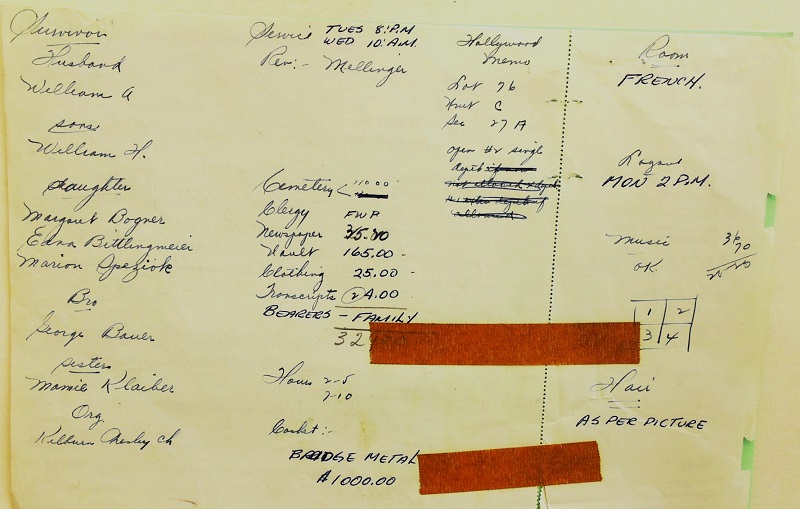 Survivors
Husband
William A
sons
William H.
daughter
Margaret Bogner
Edna Bittlingmeier
Marion Speziok
Bro
George Bauer
sisters
Mamie Klaiber
Org
Kilburn Presby Ch
Service TUES 8:P.M
WED 10:A.M.
Rev:- Mellinger
Cemetery 110 00
Clergy FWP
Newspaper
Vault 165.00 -
Clothing 25.00 -
Transcripts 2 4.00
BEARERS - FAMILY
32
Hours 2-5
7-10
Casket:-
METAL
1000.00
Hollywood
Memo
Lot 76
Unit C
Sec 27 A
open #2 single
depth
Room
FRENCH.
Layout
MON 2 P.M.
Music
OK
36
70
1 2
3 4
Hair
AS PER PICTURE